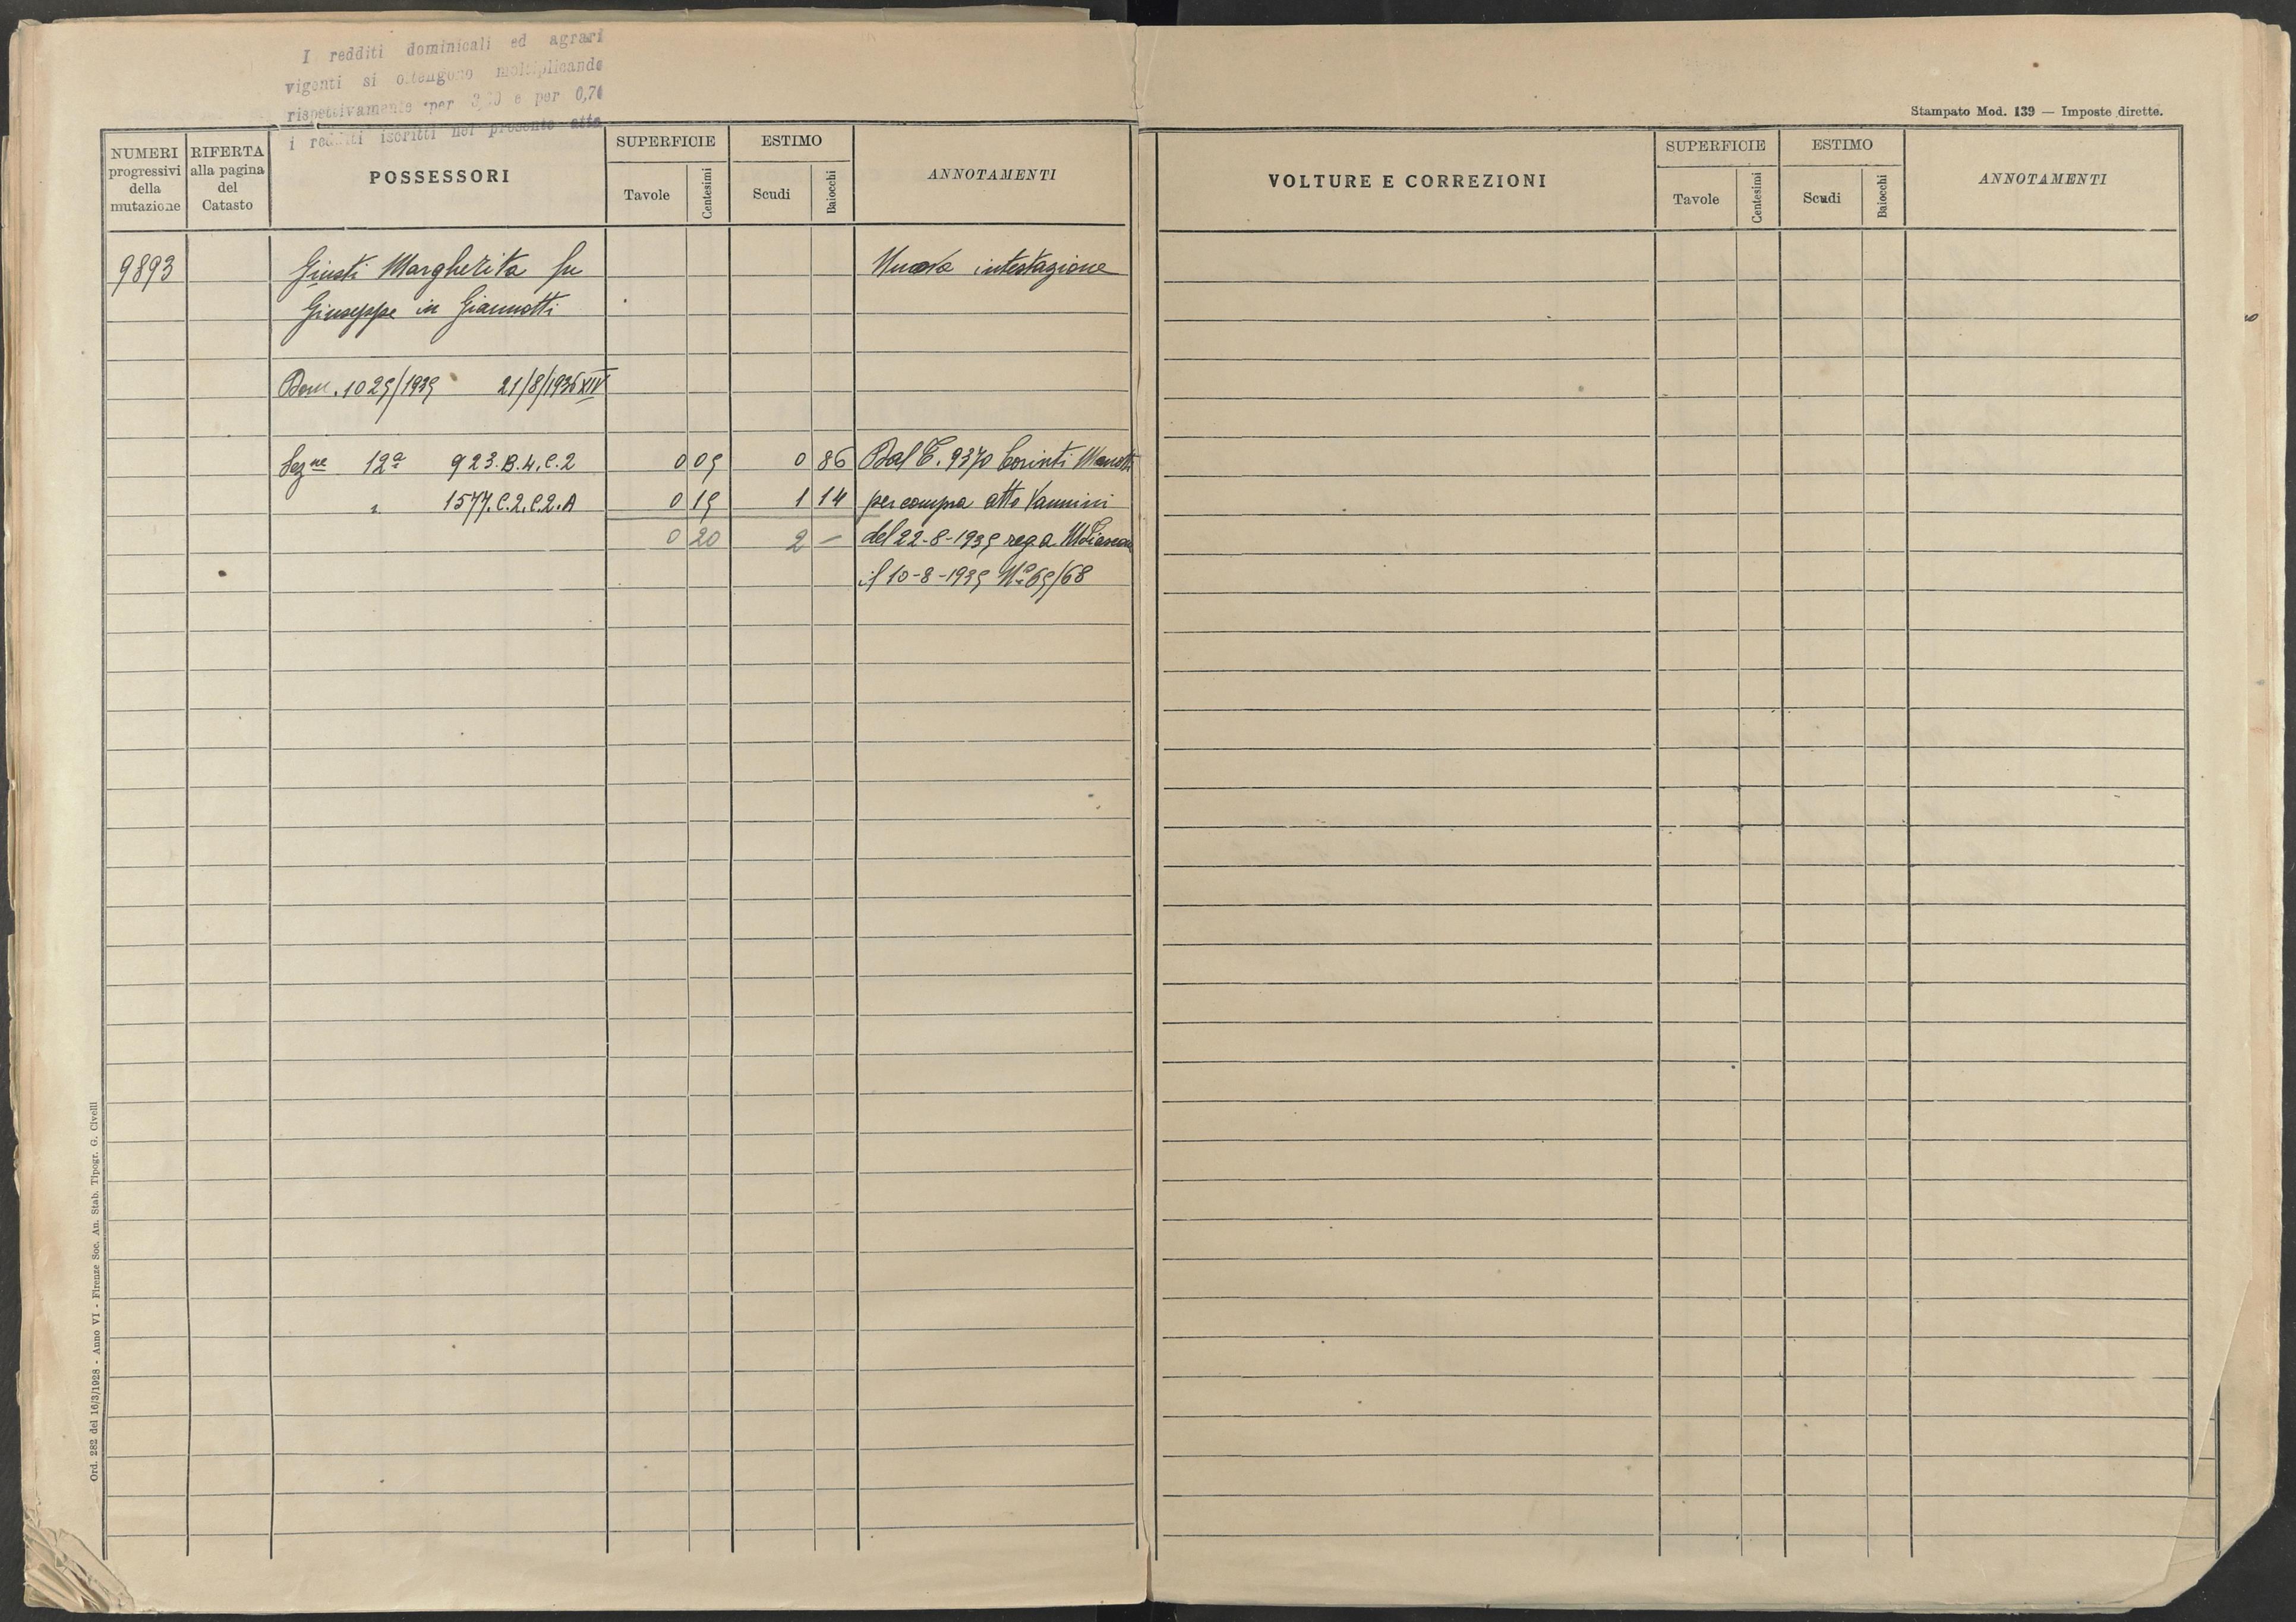 I redditi dominicali ed agrari
vigenti si ottengono moltiplicando
rispettivamente per e per 0,70
i redditi iscritti nel presente atto
Stampato Mod. 139 — Imposte dirette.
NUMERI progressivi della mutazione
RIFERTA alla pagina del Catasto
POSSESSORI
SUPERFICIE
Tavole
Centesimi
ESTIMO
Scudi
Baiocchi
ANNOTAMENTI
VOLTURE E CORREZIONI
SUPERFICIE
Tavole
Centesimi
ESTIMO
Scudi
Baiocchi
ANNOTAMENTI
9893 Giusti Margherita fu Nuova intestazione
Giuseppe in Giannotti
Dom. 1025/1935 21/8/1936 XIV
Sezne 12a 923.B.4.C.2 0 05 0 86 Dal C. 9370 Corinti
" 1577.C.2.C.2.A 0 15 1 14 per compra atto Vannini
0 20 2 — del 22-8-1935 reg. a
il 10-8-1935 No 65/68
Ord. 282 del 16/3/1928 - Anno VI - Firenze Soc. An. Stab. Tipogr. G. Civelli